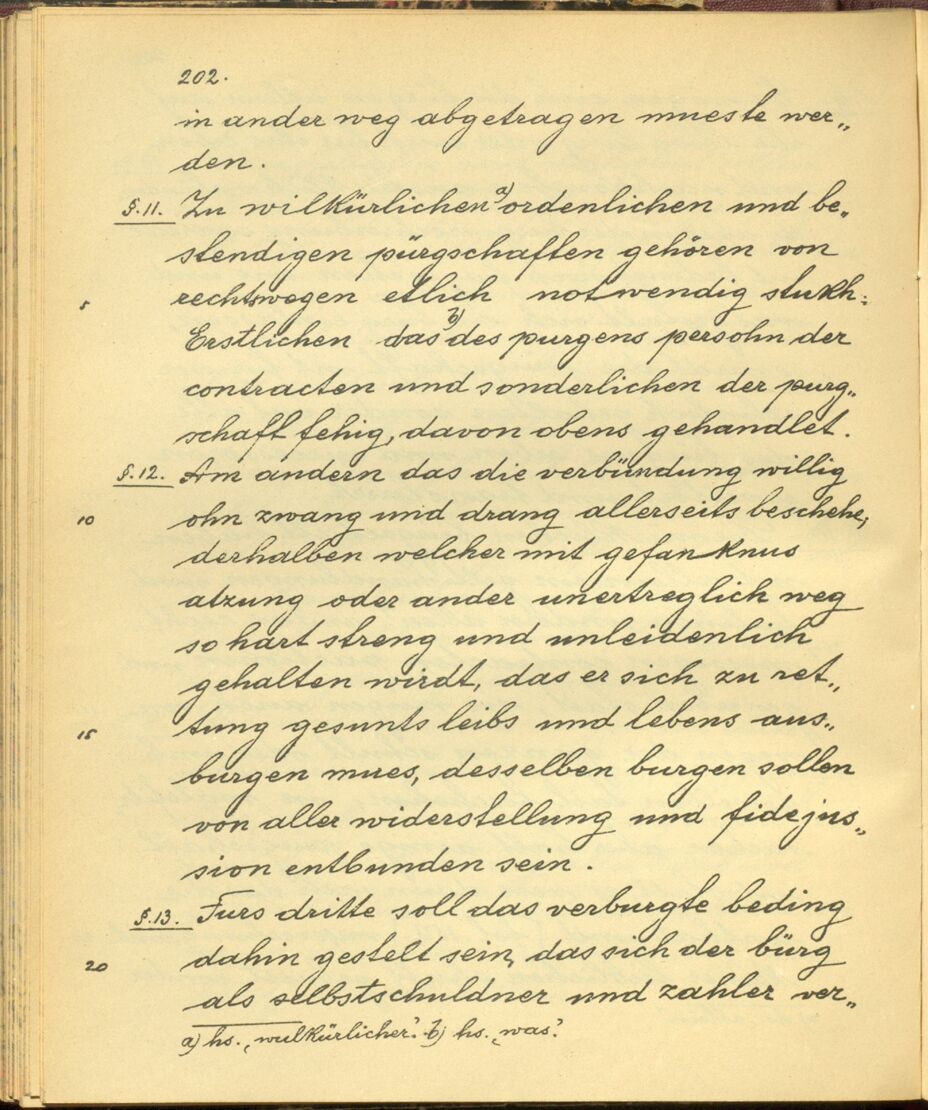 202.
in ander weg abgetragen mueste wer„
den.
§.11. Zu wilkürlichen a) ordenlichen und be„
stendigen pürgschaften gehören von
5 rechtswegen etlich notwendig stukh:
Erstlichen das b) des purgens persohn der
contracten und sonderlichen der purg„
schaft fehig, davon obens gehandlet.
§.12. Am andern das die verbündung willig
10 ohn zwang und drang allerseits beschehe,
derhalben welcher mit gefanknus
atzung oder ander unertreglich weg
so hart streng und unleidenlich
gehalten wirdt, das er sich zu ret„
15 tung gesunts leibs und lebens aus„
burgen mues, desselben burgen sollen
von aller widerstellung und fidejus„
sion entbunden sein.
§.13. Furs dritte soll das verburgte beding
20 dahin gestelt sein, das sich der bürg
als selbstschuldner und zahler ver„
a) hs. „wulkürlicher". b) hs. „was".